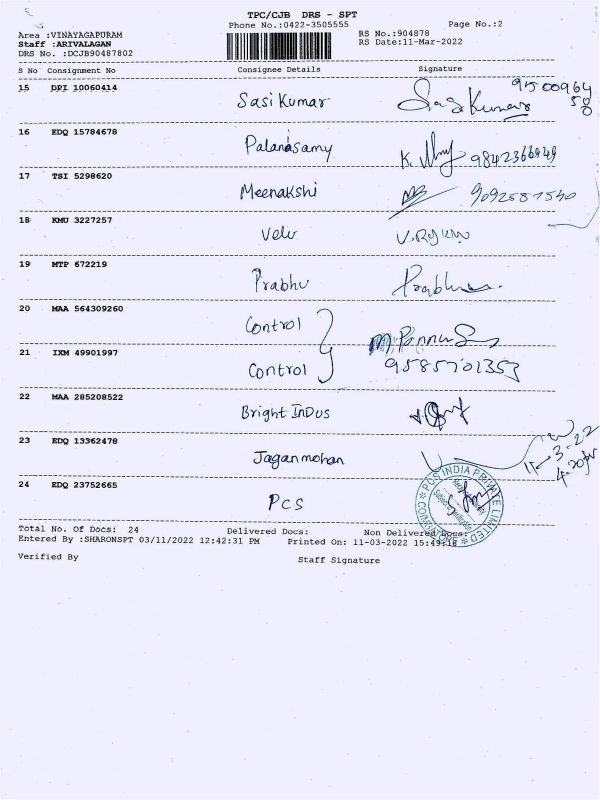 TPC/CJB DRS - SPT
Phone No.:0422-3505555 Page No.:2
Area :VINAYAGAPURAM RS No.:904878
Staff :ARIVALAGAN RS Date:11-Mar-2022
DRS No. :DCJB90487802
S No Consignment No Consignee Details Signature
15 DPI 10060414 Sasi Kumar Sasi Kumar 9500964
58
16 EDQ 15784678 Palanisamy K. 9842366949
17 TSI 5298620 Meenakshi 9092581540
18 KMU 3227257 Velu
19 MTP 672219 Prabhu Prabhu
20 MAA 564309260 Control
21 IXM 49901997 Control 9585701353
22 MAA 285208522 Bright Indus
23 EDQ 13362478 Jaganmohan
11-3-22
24 EDQ 23752665 PCS
PCS INDIA PRIVATE LIMITED
Total No. Of Docs: 24 Delivered Docs: Non Delivered Docs:
Entered By :SHARONSPT 03/11/2022 12:42:31 PM Printed On: 11-03-2022 15:49:18
Verified By Staff Signature